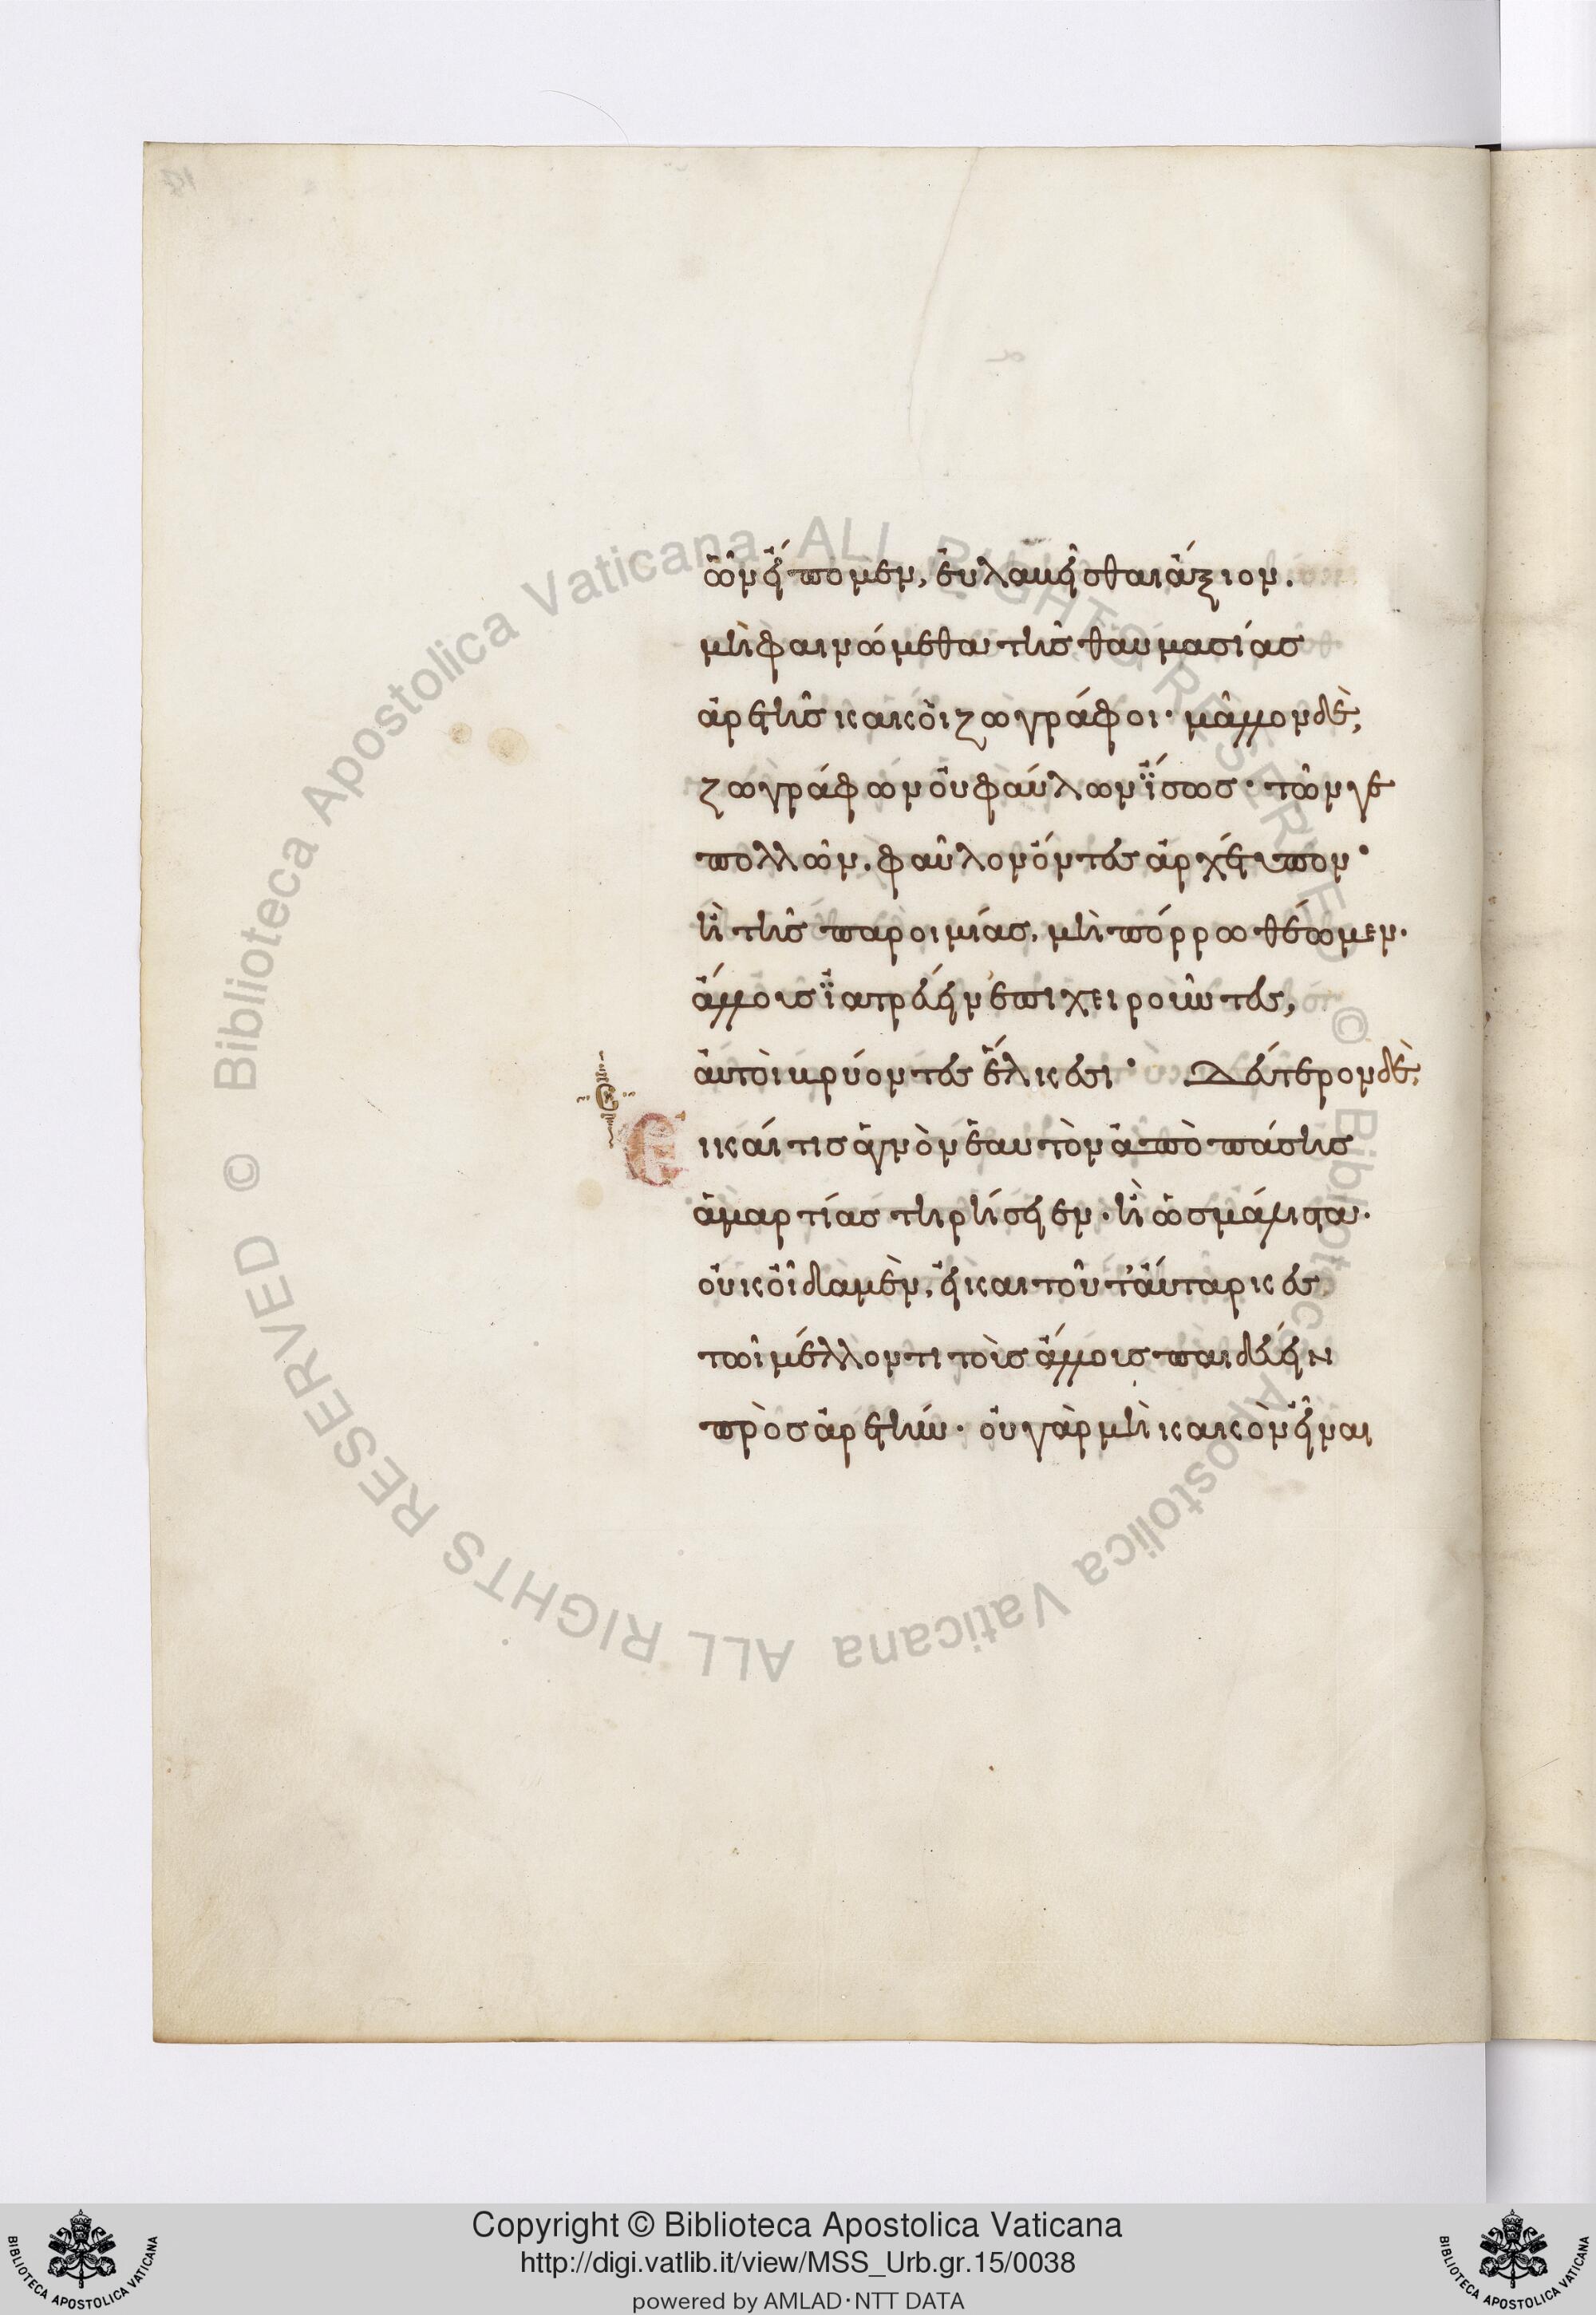 ὧν εἴπομεν, εὐλαβεῖσθαι ἄξιον.
μὴ φαινώμεθα τῆς θαυμασίας
ἀρετῆς κακοὶ ζωγράφοι· μᾶλλον δὲ,
ζωγράφων οὐ φαύλων ἴσως· τῶν γε
πολλῶν. φαῦλον ὄντες ἀρχέτυπον·
ἢ τῆς παροιμίας, μὴ πόρρω θέωμεν.
ἄλλους ἰατρεύειν ἐπιχειροῦντες,
αὐτοὶ βρύοντες ἕλκεσι· Δεύτερον δὲ,
ε
Εἰ καί τις ἁγνὸν ἑαυτὸν ἀπὸ πάσης
ἁμαρτίας τηρήσειεν. ἢ ὡς μάλιστα.
οὐκ οἶδα μὲν, εἰ καὶ τοῦτ' αὔταρκες
τῶι μέλλοντι τοὺς ἄλλους παιδεύειν
πρὸς ἀρετήν. οὐ γὰρ μὴ κακὸν εἶναι
© Biblioteca Apostolica Vaticana ALL RIGHTS RESERVED © Biblioteca Apostolica Vaticana ALL RIGHTS RESERVED
Copyright © Biblioteca Apostolica Vaticana
http://digi.vatlib.it/view/MSS_Urb.gr.15/0038
powered by AMLAD·NTT DATA
BIBLIOTECA APOSTOLICA VATICANA
BIBLIOTECA APOSTOLICA VATICANA